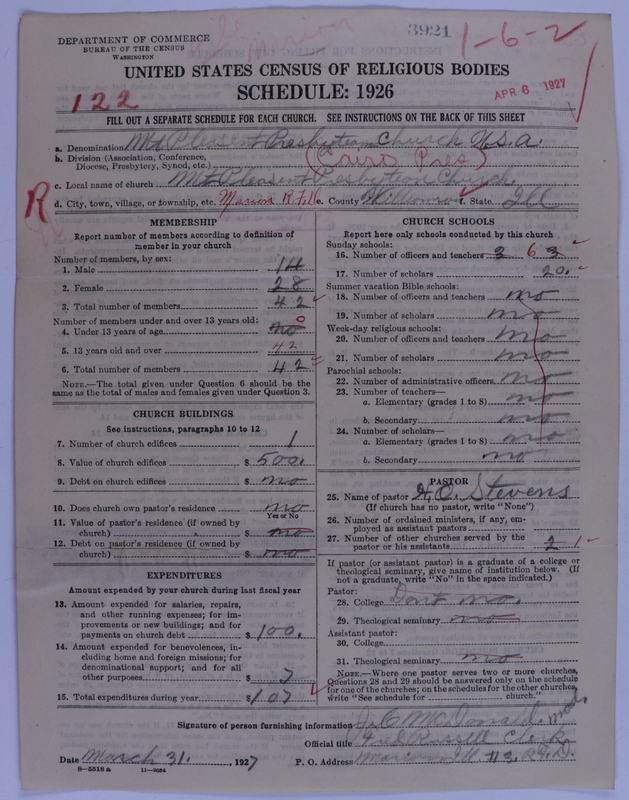 DEPARTMENT OF COMMERCE
BUREAU OF THE CENSUS
WASHINGTON
3921
1-6-2
UNITED STATES CENSUS OF RELIGIOUS BODIES
SCHEDULE: 1926
APR 6 1927
122
FILL OUT A SEPARATE SCHEDULE FOR EACH CHURCH. SEE INSTRUCTIONS ON THE BACK OF THIS SHEET
a. Denomination Mt Plesent Presbyterian Church U.S.A.
b. Division (Association, Conference,
Diocese, Presbytery, Synod, etc.) (Cairo Pres)
c. Local name of church Mt Pleasent Presbytian Church
R
d. City, town, village, or township, etc. Marion R.F.D. e. County Williamson f. State Ill
MEMBERSHIP
Report number of members according to definition of
member in your church
Number of members, by sex:
1. Male 14
2. Female 28
3. Total number of members 42
Number of members under and over 13 years old:
4. Under 13 years of age no 0
5. 13 years old and over 42
6. Total number of members 42
NOTE.—The total given under Question 6 should be the
same as the total of males and females given under Question 3.
CHURCH BUILDINGS
See instructions, paragraphs 10 to 12
7. Number of church edifices 1
8. Value of church edifices $ 500.
9. Debt on church edifices $ no
10. Does church own pastor's residence no
Yes or No
11. Value of pastor's residence (if owned by
church) $ no
12. Debt on pastor's residence (if owned by
church) $ no
EXPENDITURES
Amount expended by your church during last fiscal year
13. Amount expended for salaries, repairs,
and other running expenses; for im-
provements or new buildings; and for
payments on church debt $ 100.
14. Amount expended for benevolences, in-
cluding home and foreign missions; for
denominational support; and for all
other purposes $ 7
15. Total expenditures during year $ 107
CHURCH SCHOOLS
Report here only schools conducted by this church
Sunday schools:
16. Number of officers and teachers 3 6 3
17. Number of scholars 20.
Summer vacation Bible schools:
18. Number of officers and teachers no
19. Number of scholars no
Week-day religious schools:
20. Number of officers and teachers no
21. Number of scholars no
Parochial schools:
22. Number of administrative officers no
23. Number of teachers—
a. Elementary (grades 1 to 8) no
b. Secondary no
24. Number of scholars—
a. Elementary (grades 1 to 8) no
b. Secondary no
PASTOR
25. Name of pastor H.O. Stevens
(If church has no pastor, write "None")
26. Number of ordained ministers, if any, em-
ployed as assistant pastors
27. Number of other churches served by the
pastor or his assistants 2 1
If pastor (or assistant pastor) is a graduate of a college or
theological seminary, give name of institution below. (If
not a graduate, write "No" in the space indicated.)
Pastor:
28. College Dont no.
29. Theological seminary no
Assistant pastor:
30. College
31. Theological seminary no
NOTE.—Where one pastor serves two or more churches,
Questions 28 and 29 should be answered only on the schedule
for one of the churches; on the schedules for the other churches,
write "See schedule for church."
Signature of person furnishing information McDonald
Official title Clerk
Date March 31. , 1927 P. O. Address Marion Ill R.F.D.
8—5518 a 11—9084